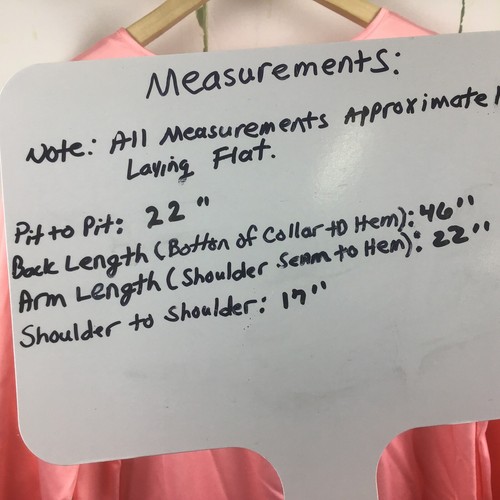 Measurements:
Note: All Measurements Approximate
Laying Flat.
Pit to Pit: 22"
Back Length (Botton of Collar to Hem): 46"
Arm Length (Shoulder Seam to Hem): 22"
Shoulder to Shoulder: 17"